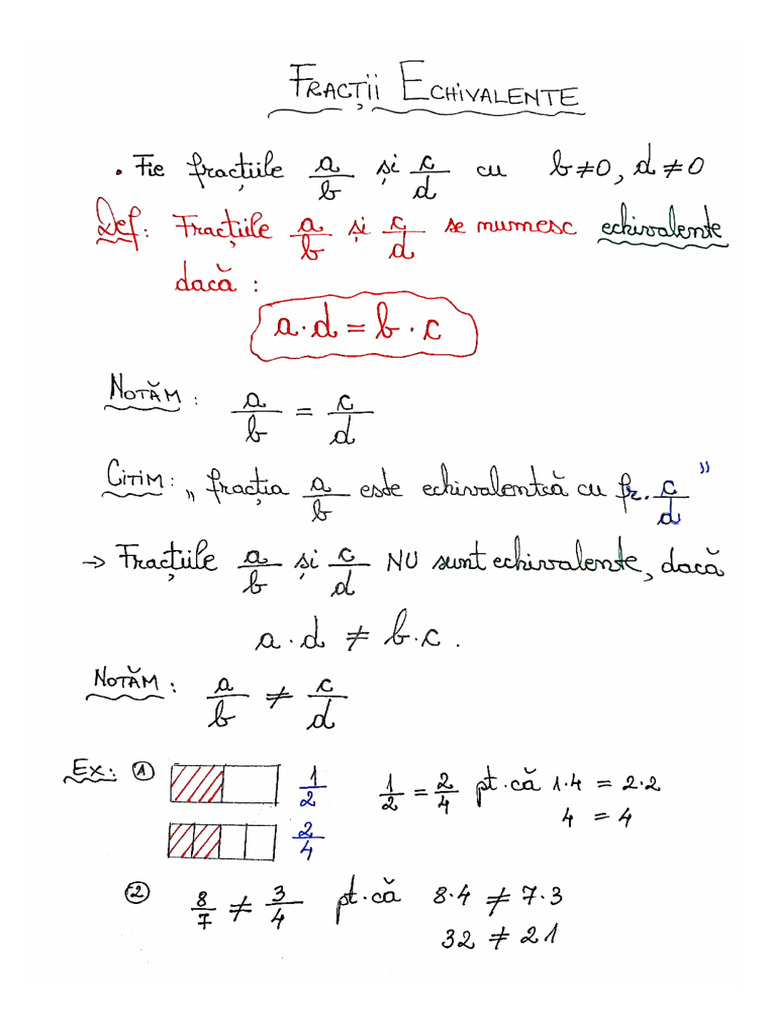 Fracții Echivalente
• Fie fracțiile a/b și c/d cu b≠0, d≠0
Def: Fracțiile a/b și c/d se numesc echivalente
dacă :
a·d = b·c
Notăm : a/b = c/d
Citim : „ fracția a/b este echivalentă cu fr. c/d ”
→ Fracțiile a/b și c/d NU sunt echivalente, dacă
a·d ≠ b·c.
Notăm : a/b ≠ c/d
Ex: ① 1/2 1/2 = 2/4 pt. că 1·4 = 2·2
2/4 4 = 4
② 8/7 ≠ 3/4 pt. că 8·4 ≠ 7·3
32 ≠ 21